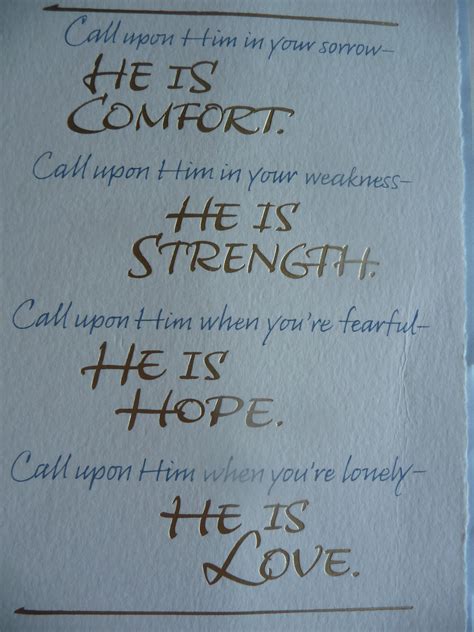 Call upon Him in your sorrow—
HE IS
COMFORT.
Call upon Him in your weakness—
HE IS
STRENGTH.
Call upon Him when you're fearful—
HE IS
HOPE.
Call upon Him when you're lonely—
HE IS
LOVE.